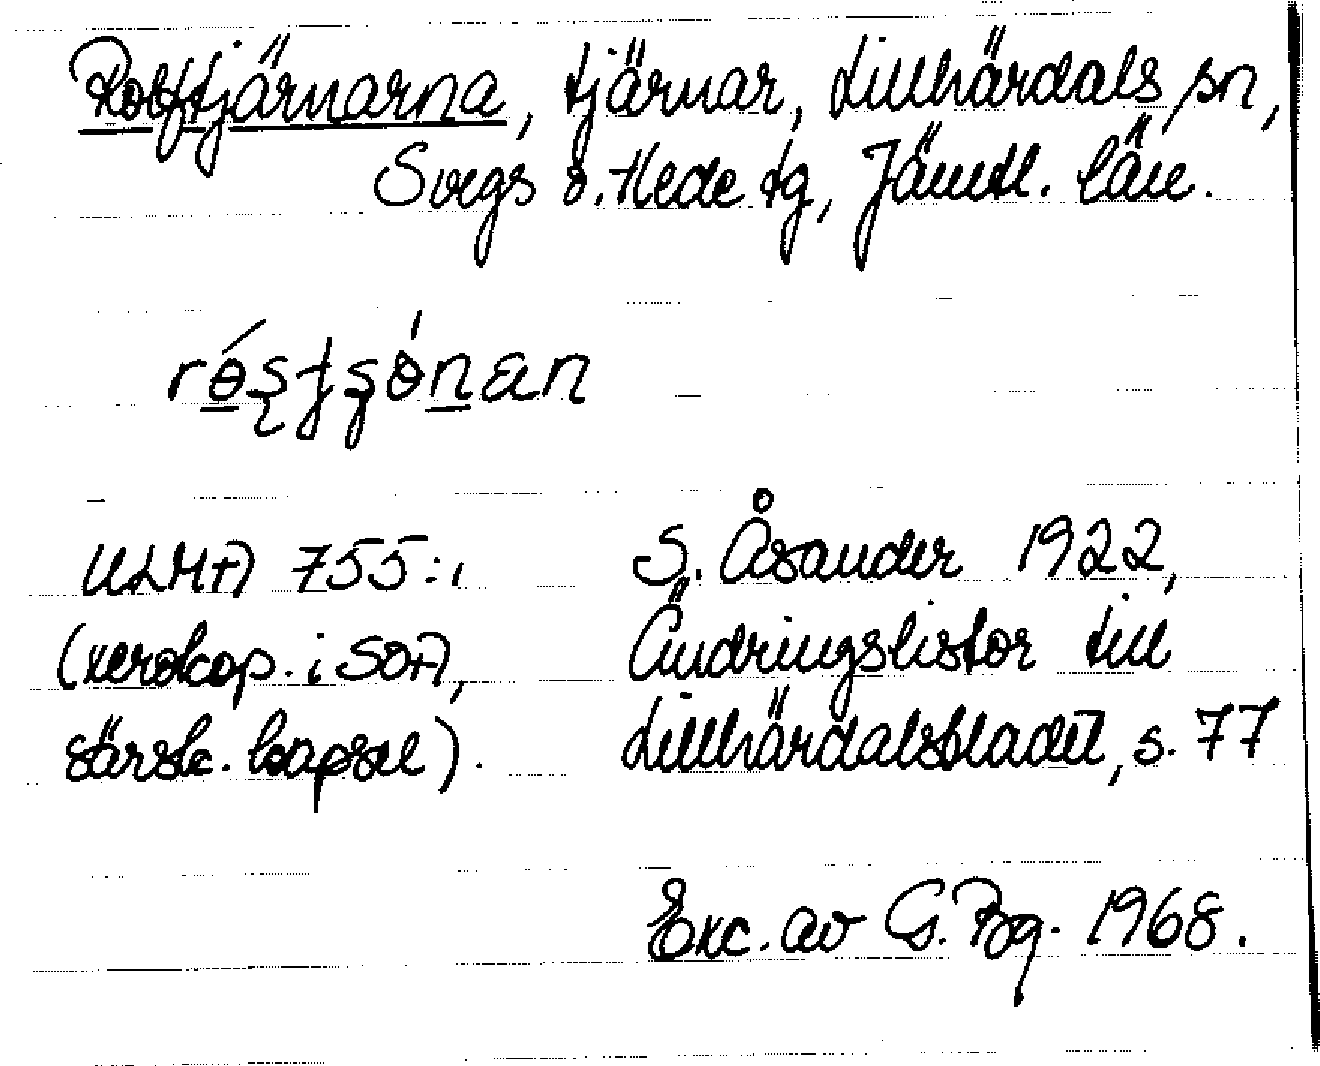 Rotftjärnarna, tjärnar, Lillhärdals sn,
Svegs o. Hede tg, Jämtl. län.
ULMA 755:1
S. Åsander 1922,
(xerokop. i SOA,
Ändringslistor till
särsk. kapsel).
Lillhärdalsbladet, s. 77
Exc. av G. Bg. 1968.